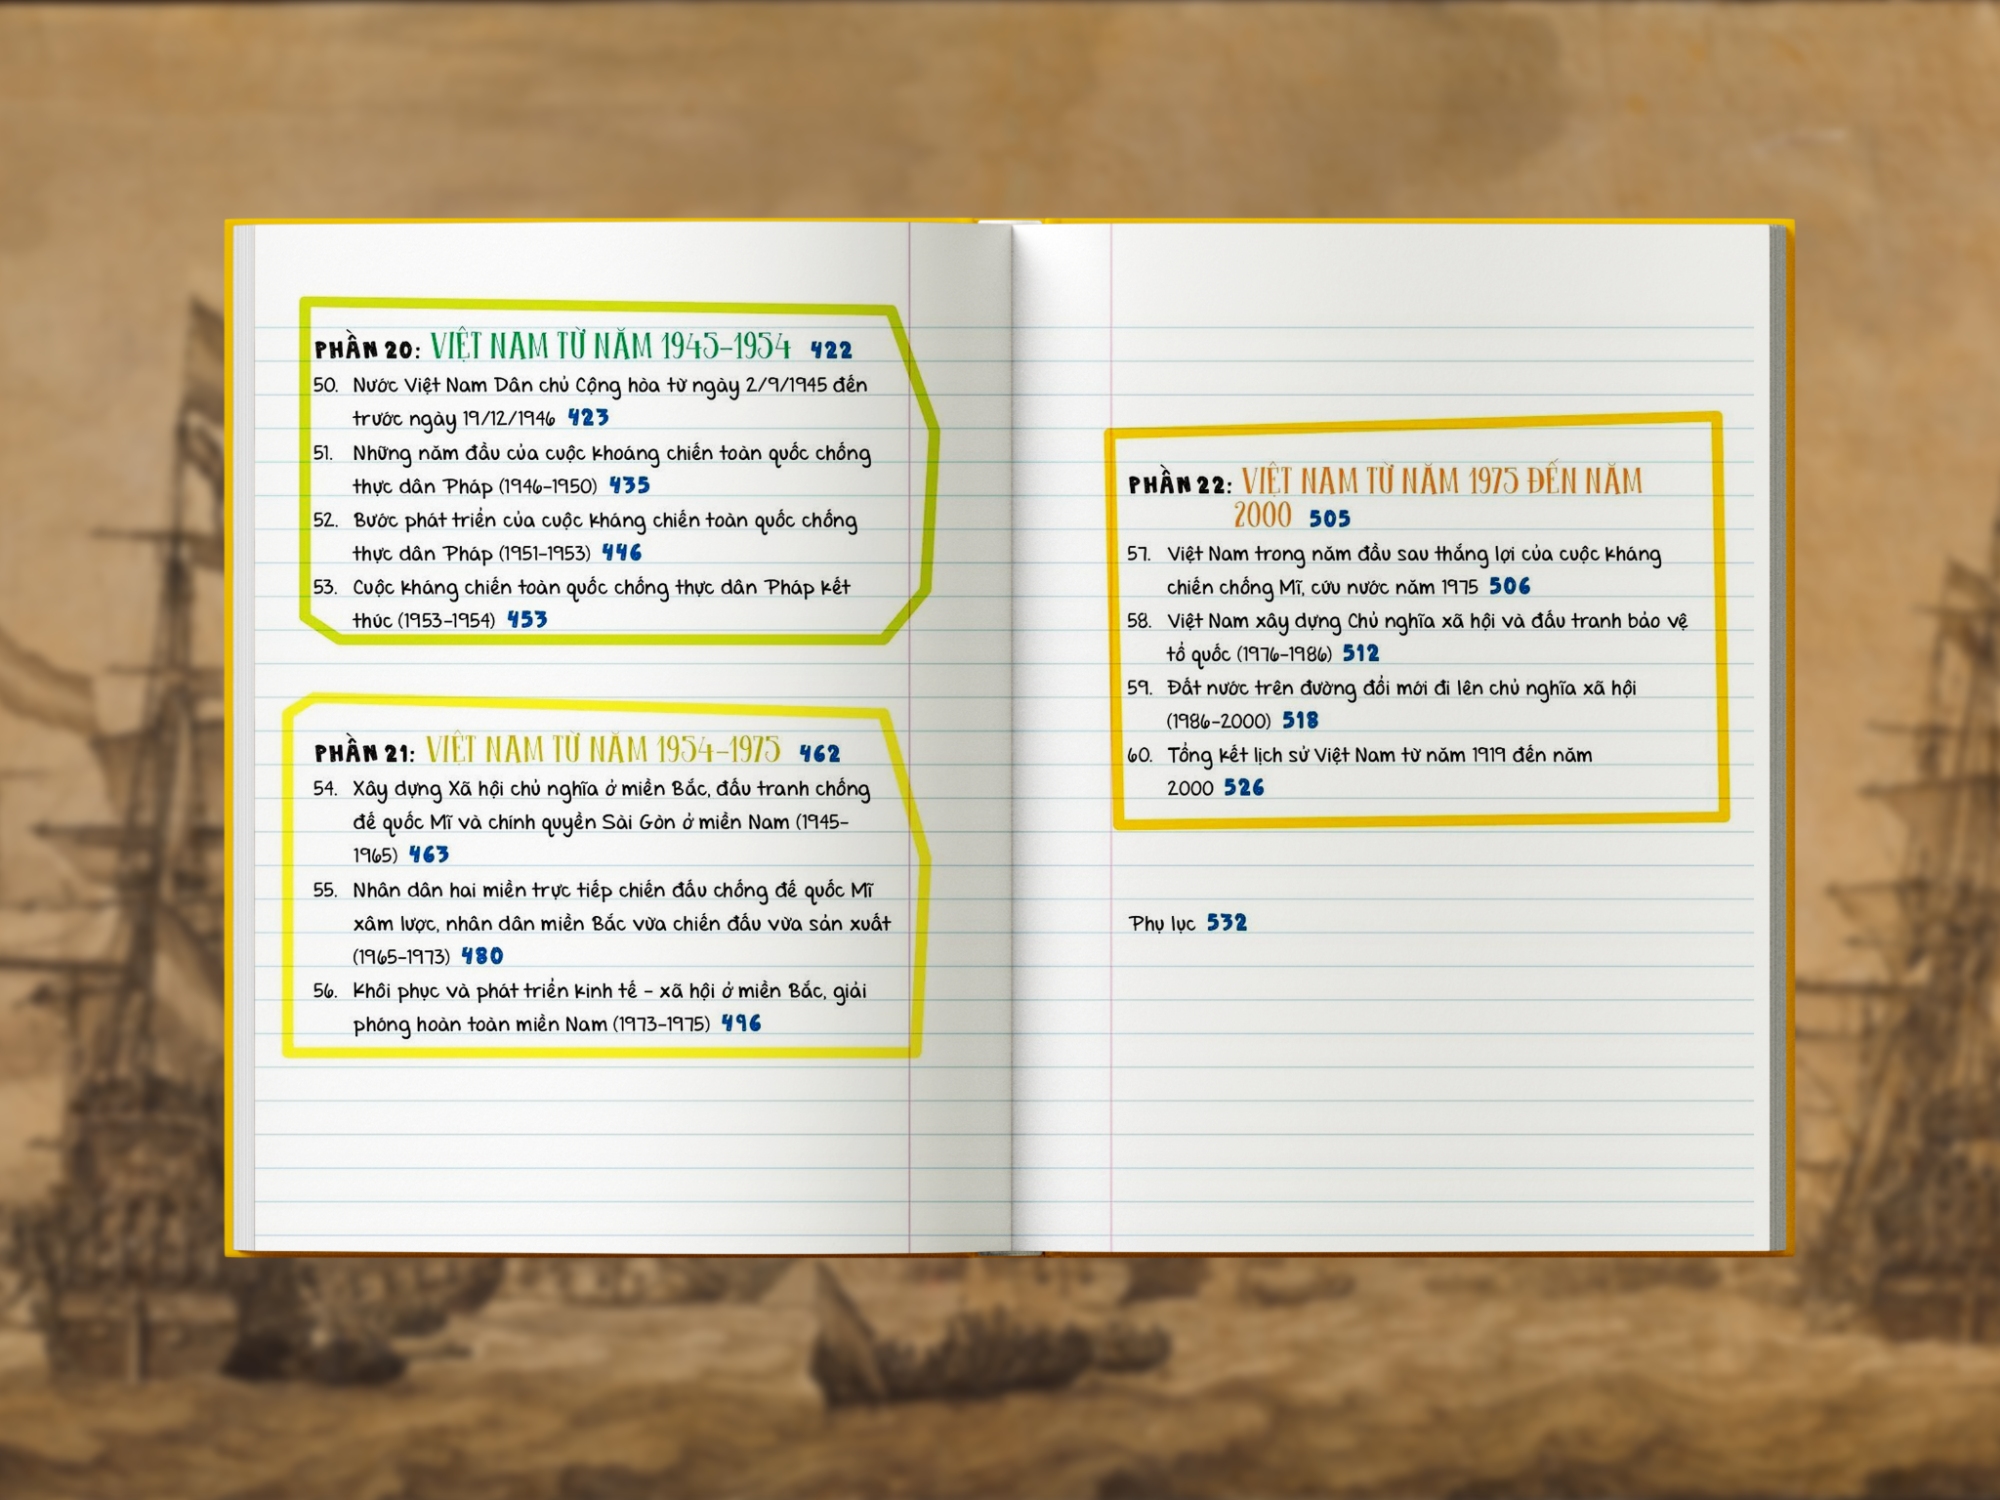 PHẦN 20: VIỆT NAM TỪ NĂM 1945-1954 422
50. Nước Việt Nam Dân chủ Cộng hòa từ ngày 2/9/1945 đến
trước ngày 19/12/1946 423
51. Những năm đầu của cuộc khoáng chiến toàn quốc chống
thực dân Pháp (1946-1950) 435
52. Bước phát triển của cuộc kháng chiến toàn quốc chống
thực dân Pháp (1951-1953) 446
53. Cuộc kháng chiến toàn quốc chống thực dân Pháp kết
thúc (1953-1954) 453
PHẦN 21: VIỆT NAM TỪ NĂM 1954-1975 462
54. Xây dựng Xã hội chủ nghĩa ở miền Bắc, đấu tranh chống
đế quốc Mĩ và chính quyền Sài Gòn ở miền Nam (1945-
1965) 463
55. Nhân dân hai miền trực tiếp chiến đấu chống đế quốc Mĩ
xâm lược, nhân dân miền Bắc vừa chiến đấu vừa sản xuất
(1965-1973) 480
56. Khôi phục và phát triển kinh tế - xã hội ở miền Bắc, giải
phóng hoàn toàn miền Nam (1973-1975) 496
PHẦN 22: VIỆT NAM TỪ NĂM 1975 ĐẾN NĂM
2000 505
57. Việt Nam trong năm đầu sau thắng lợi của cuộc kháng
chiến chống Mĩ, cứu nước năm 1975 506
58. Việt Nam xây dựng Chủ nghĩa xã hội và đấu tranh bảo vệ
tổ quốc (1976-1986) 512
59. Đất nước trên đường đổi mới đi lên chủ nghĩa xã hội
(1986-2000) 518
60. Tổng kết lịch sử Việt Nam từ năm 1919 đến năm
2000 526
Phụ lục 532